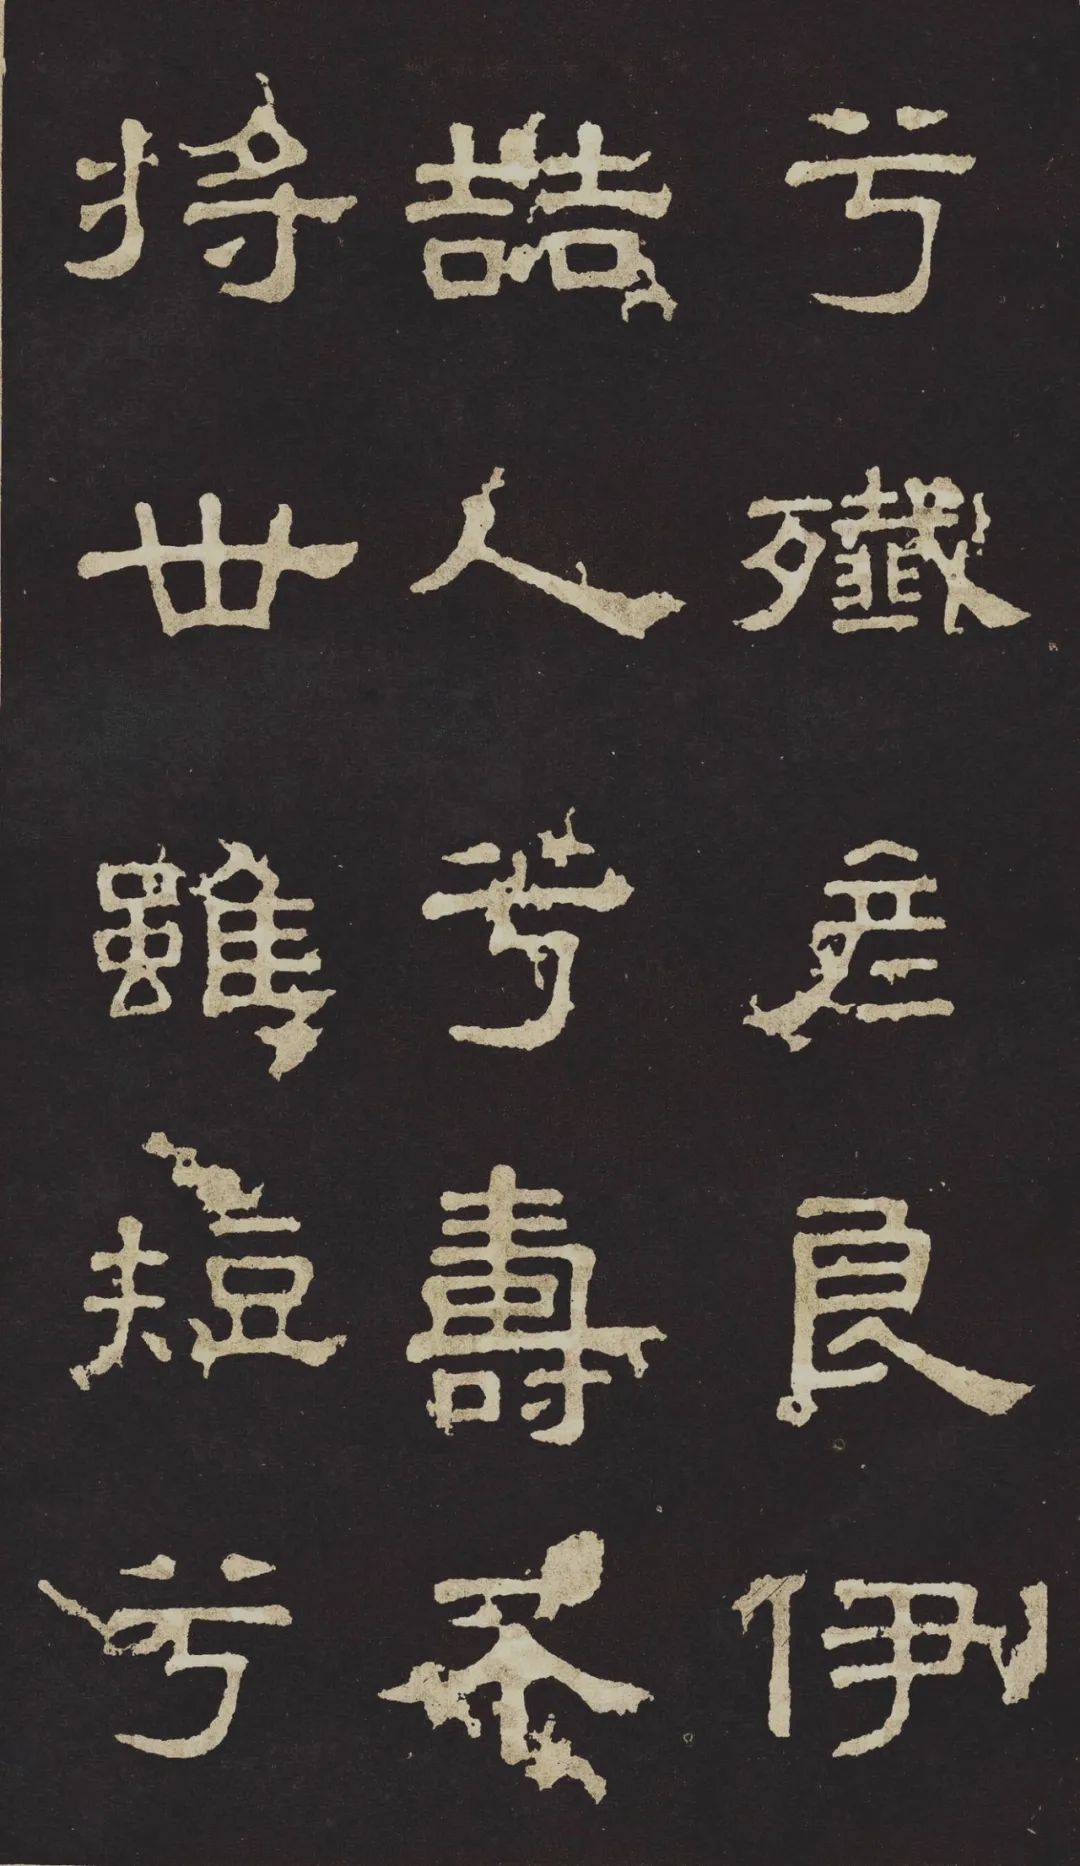 兮殲彦良伊
喆人兮壽不
將世雖短兮